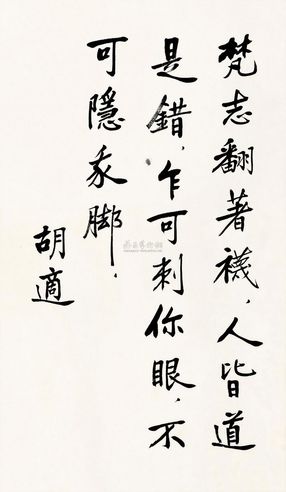 梵志翻著襪，人皆道
是錯，乍可刺你眼，不
可隱我脚．
胡適